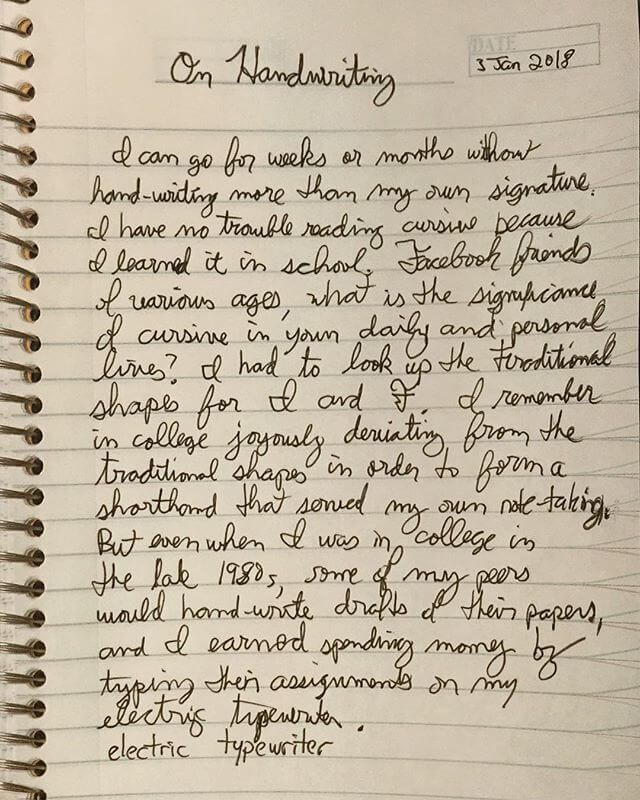 On Handwriting
DATE
3 Jan 2018
I can go for weeks or months without
hand-writing more than my own signature.
I have no trouble reading cursive because
I learned it in school. Facebook friends
of various ages, what is the significance
of cursive in your daily and personal
lives? I had to look up the traditional
shapes for I and F. I remember
in college joyously deviating from the
traditional shapes in order to form a
shorthand that served my own note-taking.
But even when I was in college in
the late 1980s, some of my peers
would hand-write drafts of their papers,
and I earned spending money by
typing their assignments on my
electric typewriter.
electric typewriter